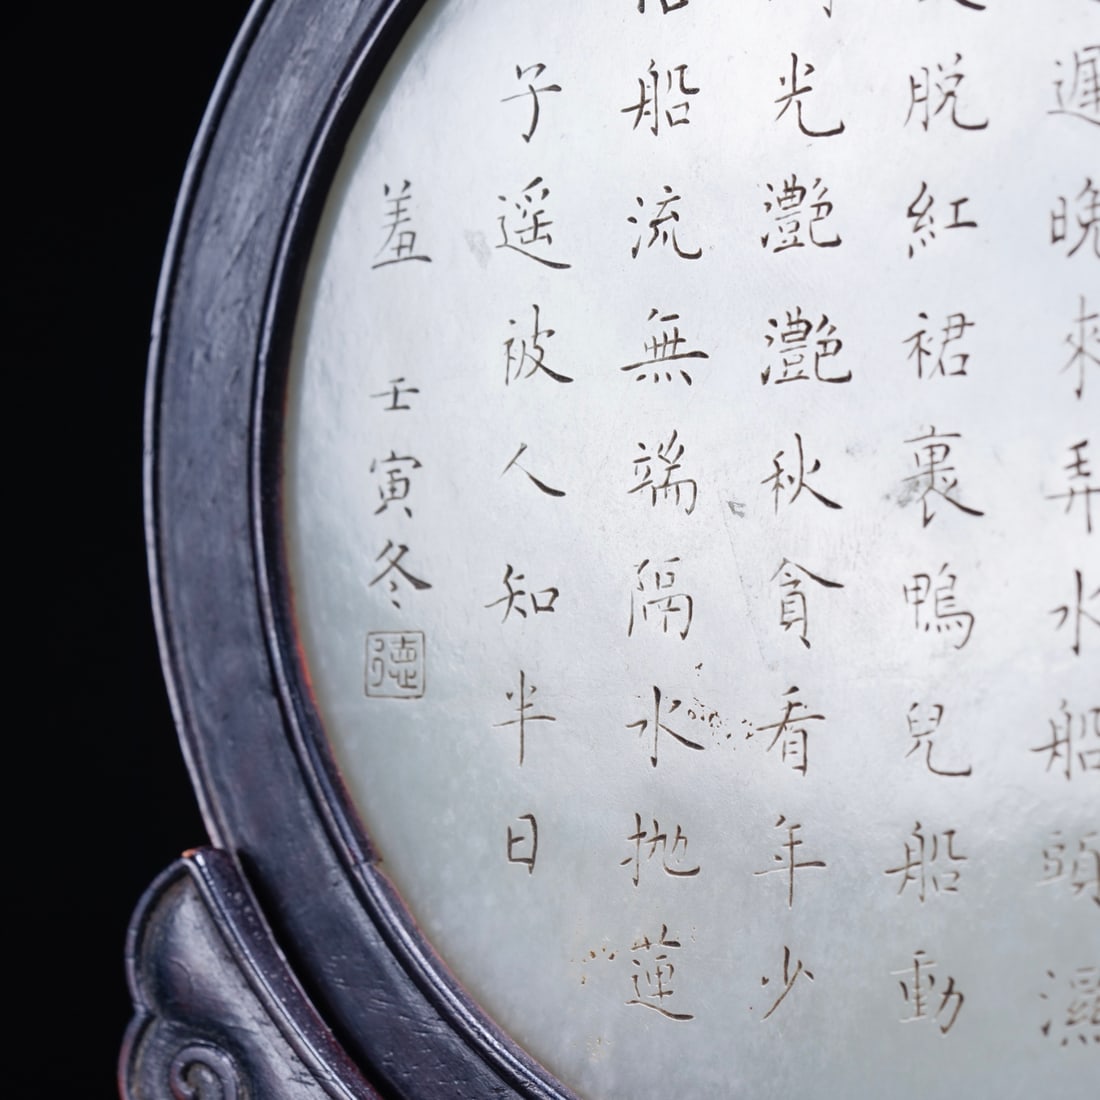 遲晚來弄水船頭濕
脱紅裙裹鴨兒船動
光灩灩秋貪看年少
船流無端隔水拋蓮
子遥被人知半日
羞 壬寅冬
德